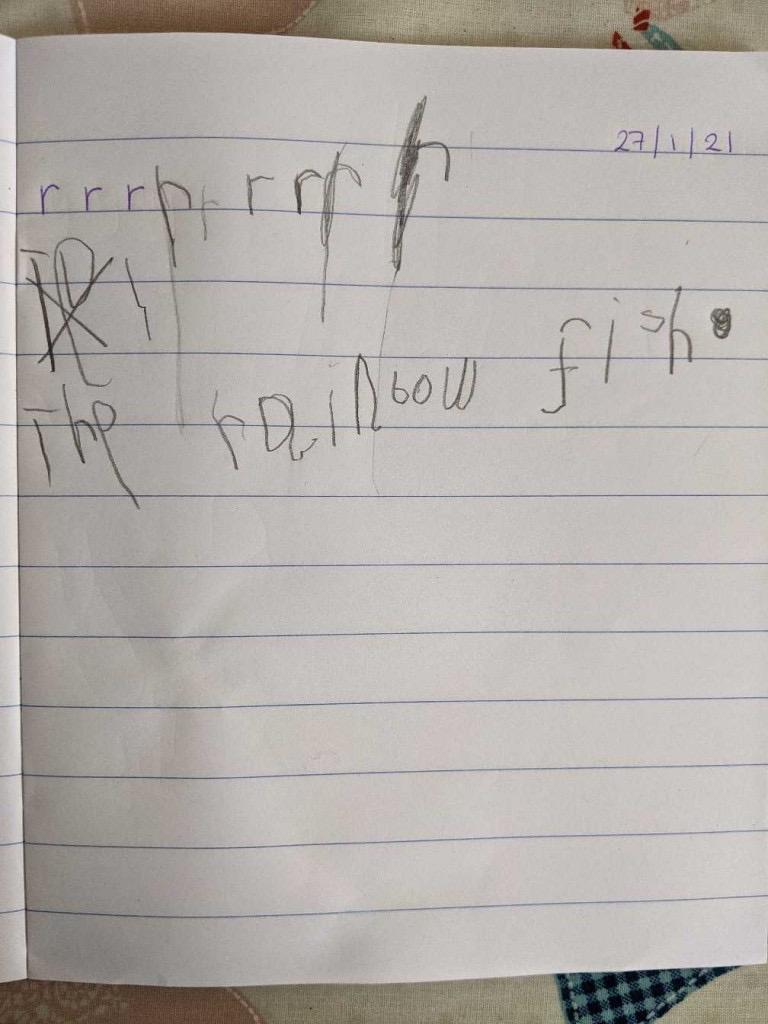 27/1/21
r r r r r r r r r
The rainbow fish.